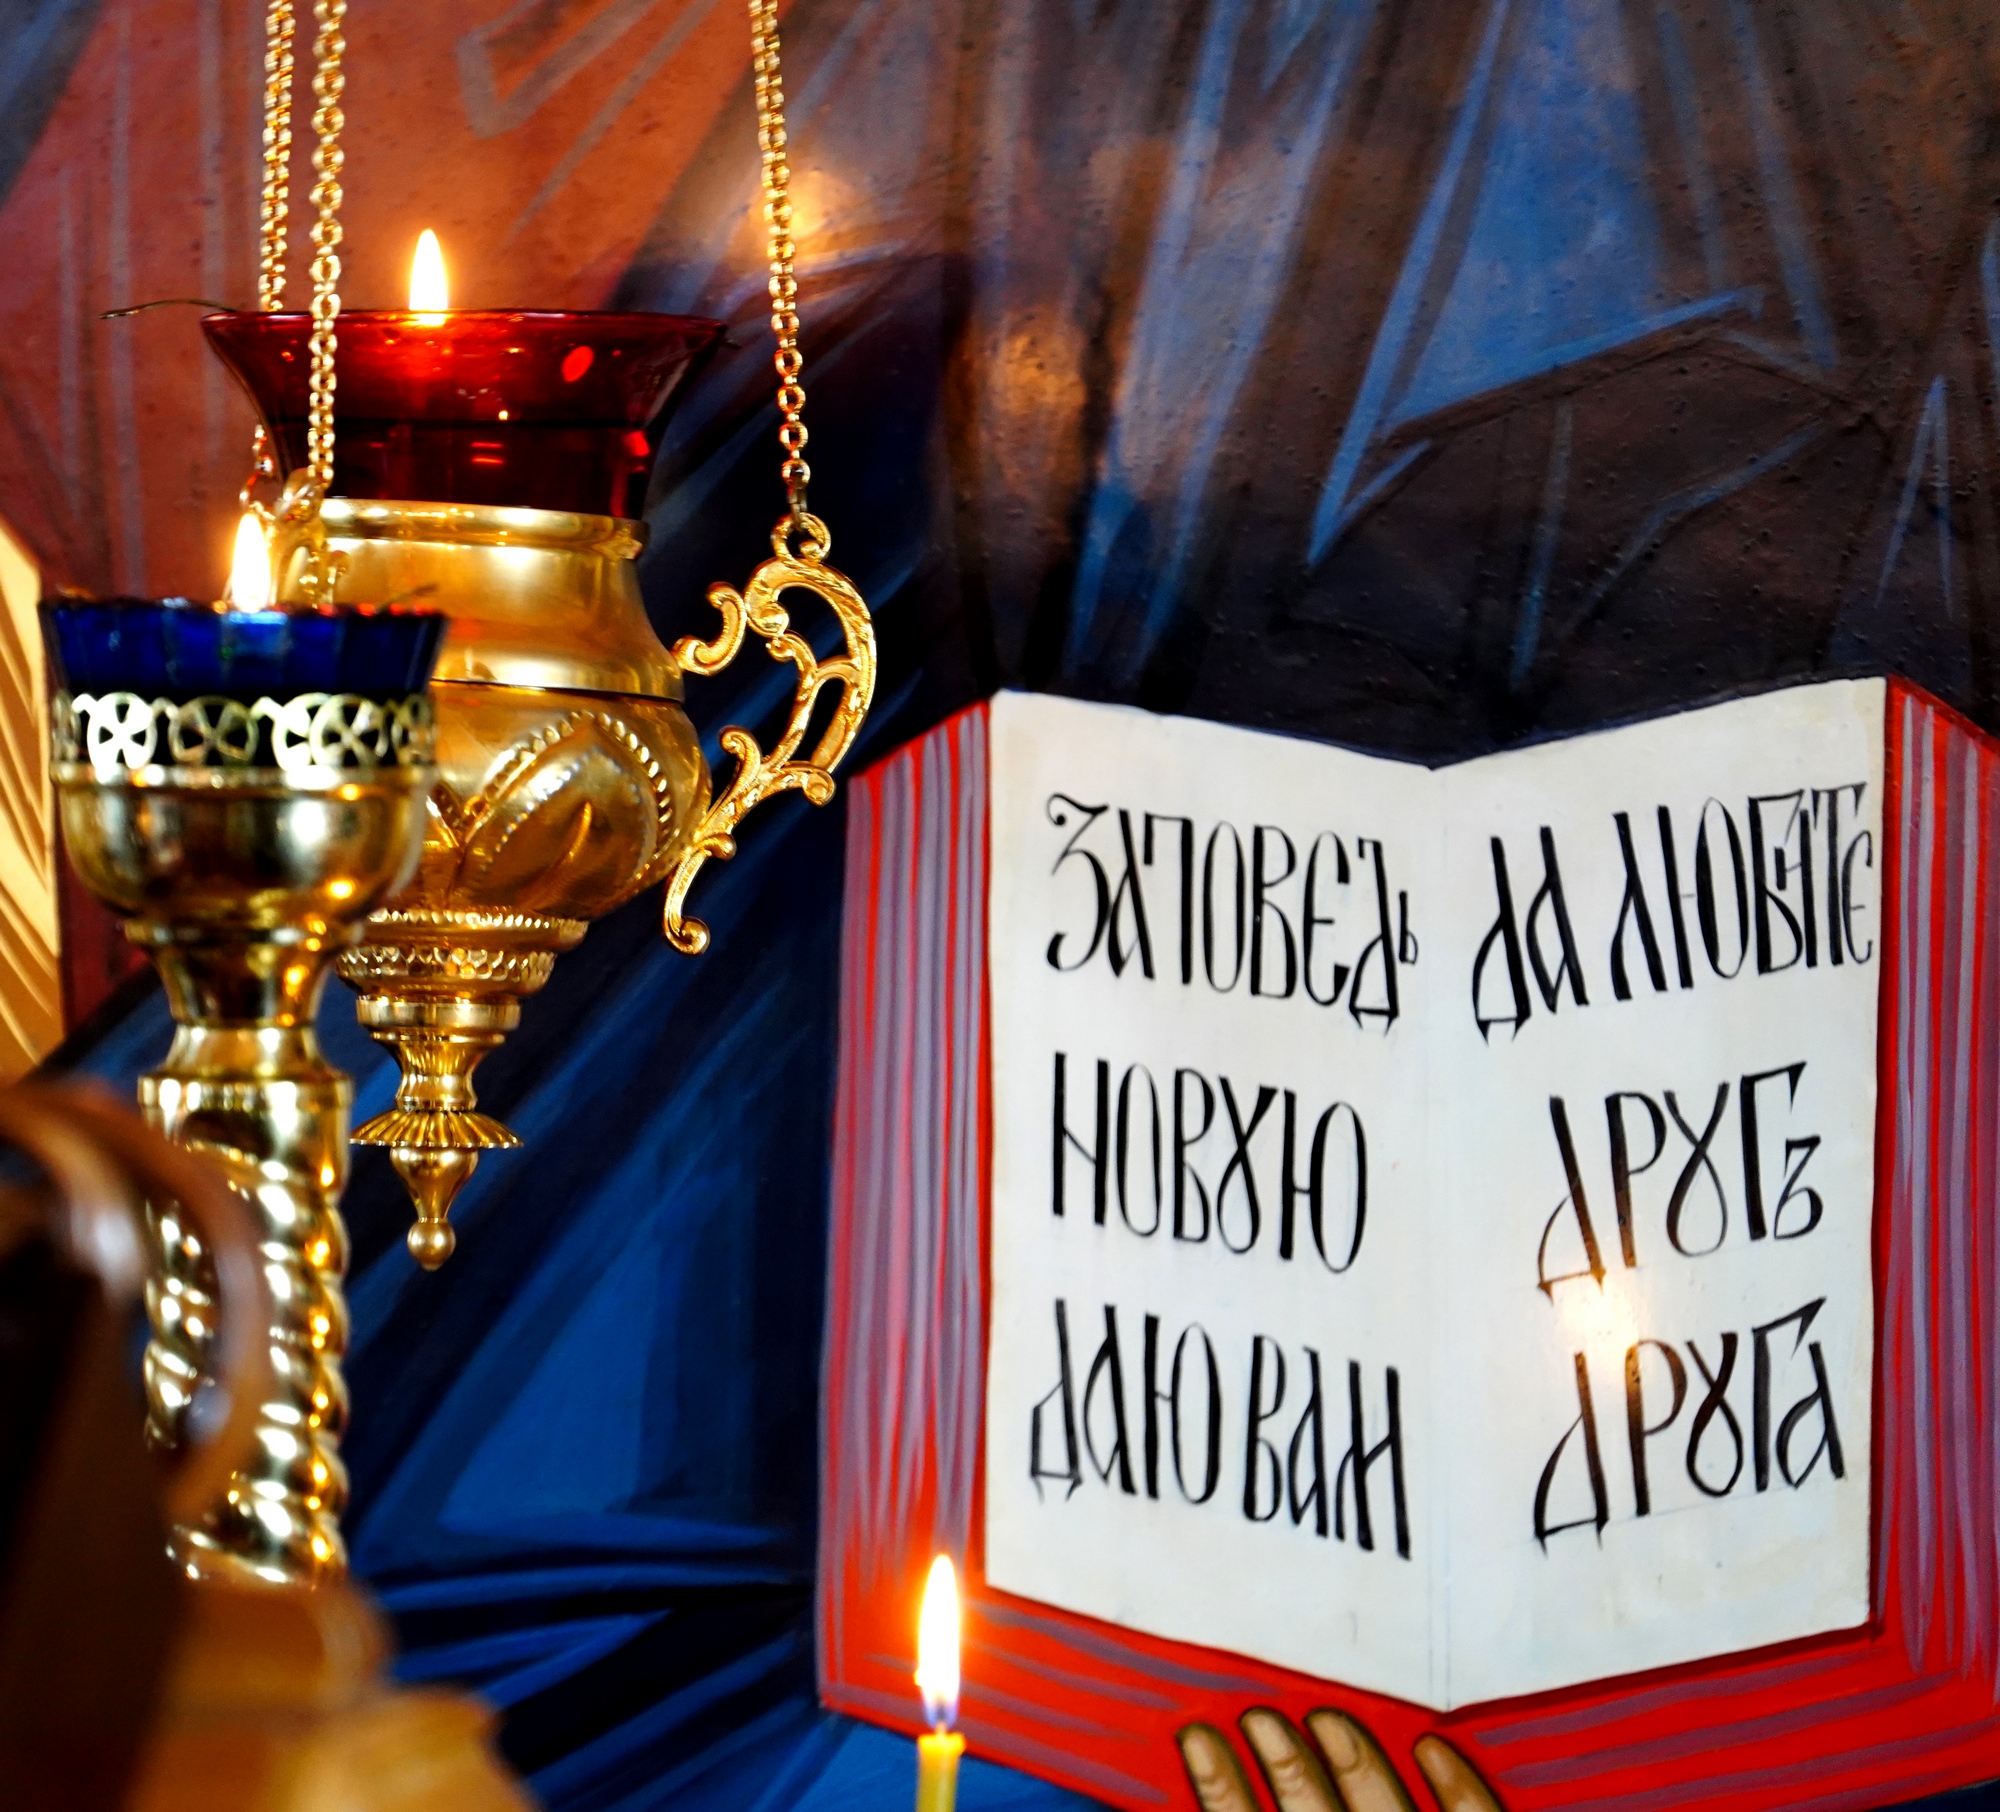 заповедь
новꙋю
даю вам
да любите
дрꙋгъ
дрꙋга